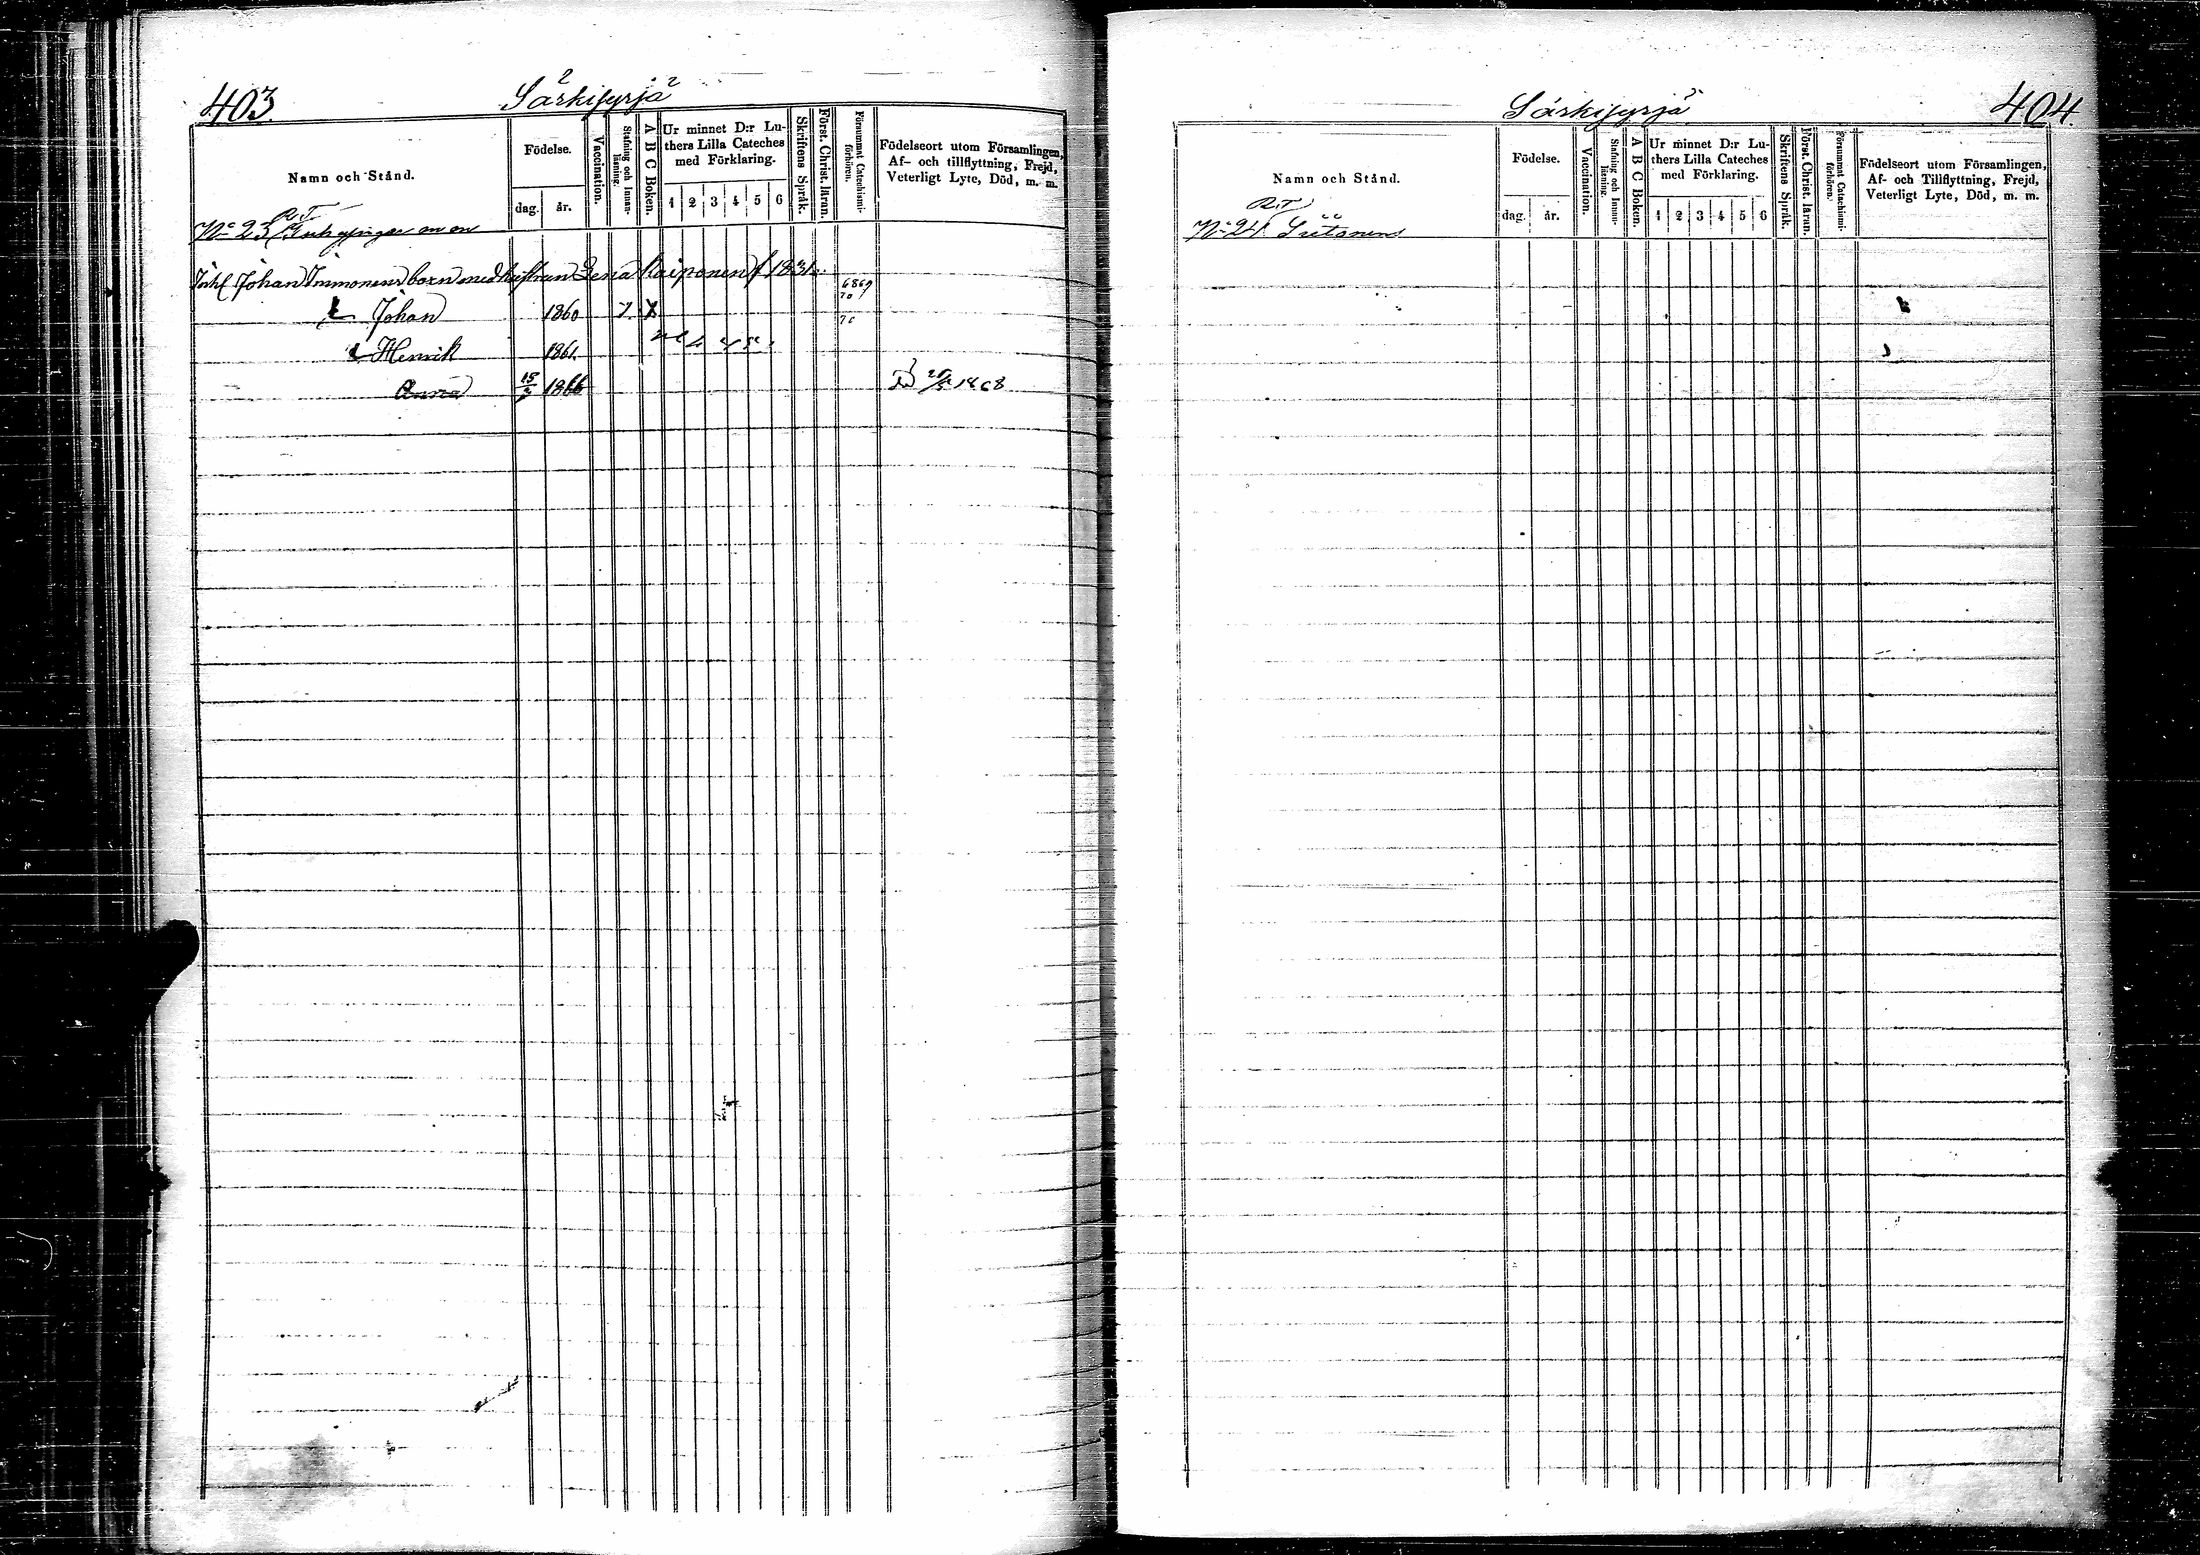 403.
Särkisyrjä
Namn och Stånd.
Födelse.
dag.
år.
Vaccination.
Stafning och Innan-
läsning.
A B C Boken.
Ur minnet D:r Lu-
thers Lilla Cateches
med Förklaring.
1 2 3 4 5 6
Skriftens Språk.
Först. Christ. läran.
Försummat Catechismi-
förhören.
Födelseort utom Församlingen,
Af- och tillflyttning, Frejd,
Veterligt Lyte, Död, m. m.
R.T.
No 23
Johan Immonens barn med hustrun Lena Kaiponen f 1831.
6869
70
Johan 1860
70
Henrik 1861.
Anna 18/2 1866 1868
Särkisyrjä
404.
Namn och Stånd.
Födelse.
dag.
år.
Vaccination.
Stafning och Innan-
läsning.
A B C Boken.
Ur minnet D:r Lu-
thers Lilla Cateches
med Förklaring.
1 2 3 4 5 6
Skriftens Språk.
Först. Christ. läran.
Försummat Catechismi-
förhören.
Födelseort utom Församlingen,
Af- och Tillflyttning, Frejd,
Veterligt Lyte, Död, m. m.
R.T.
No 24.